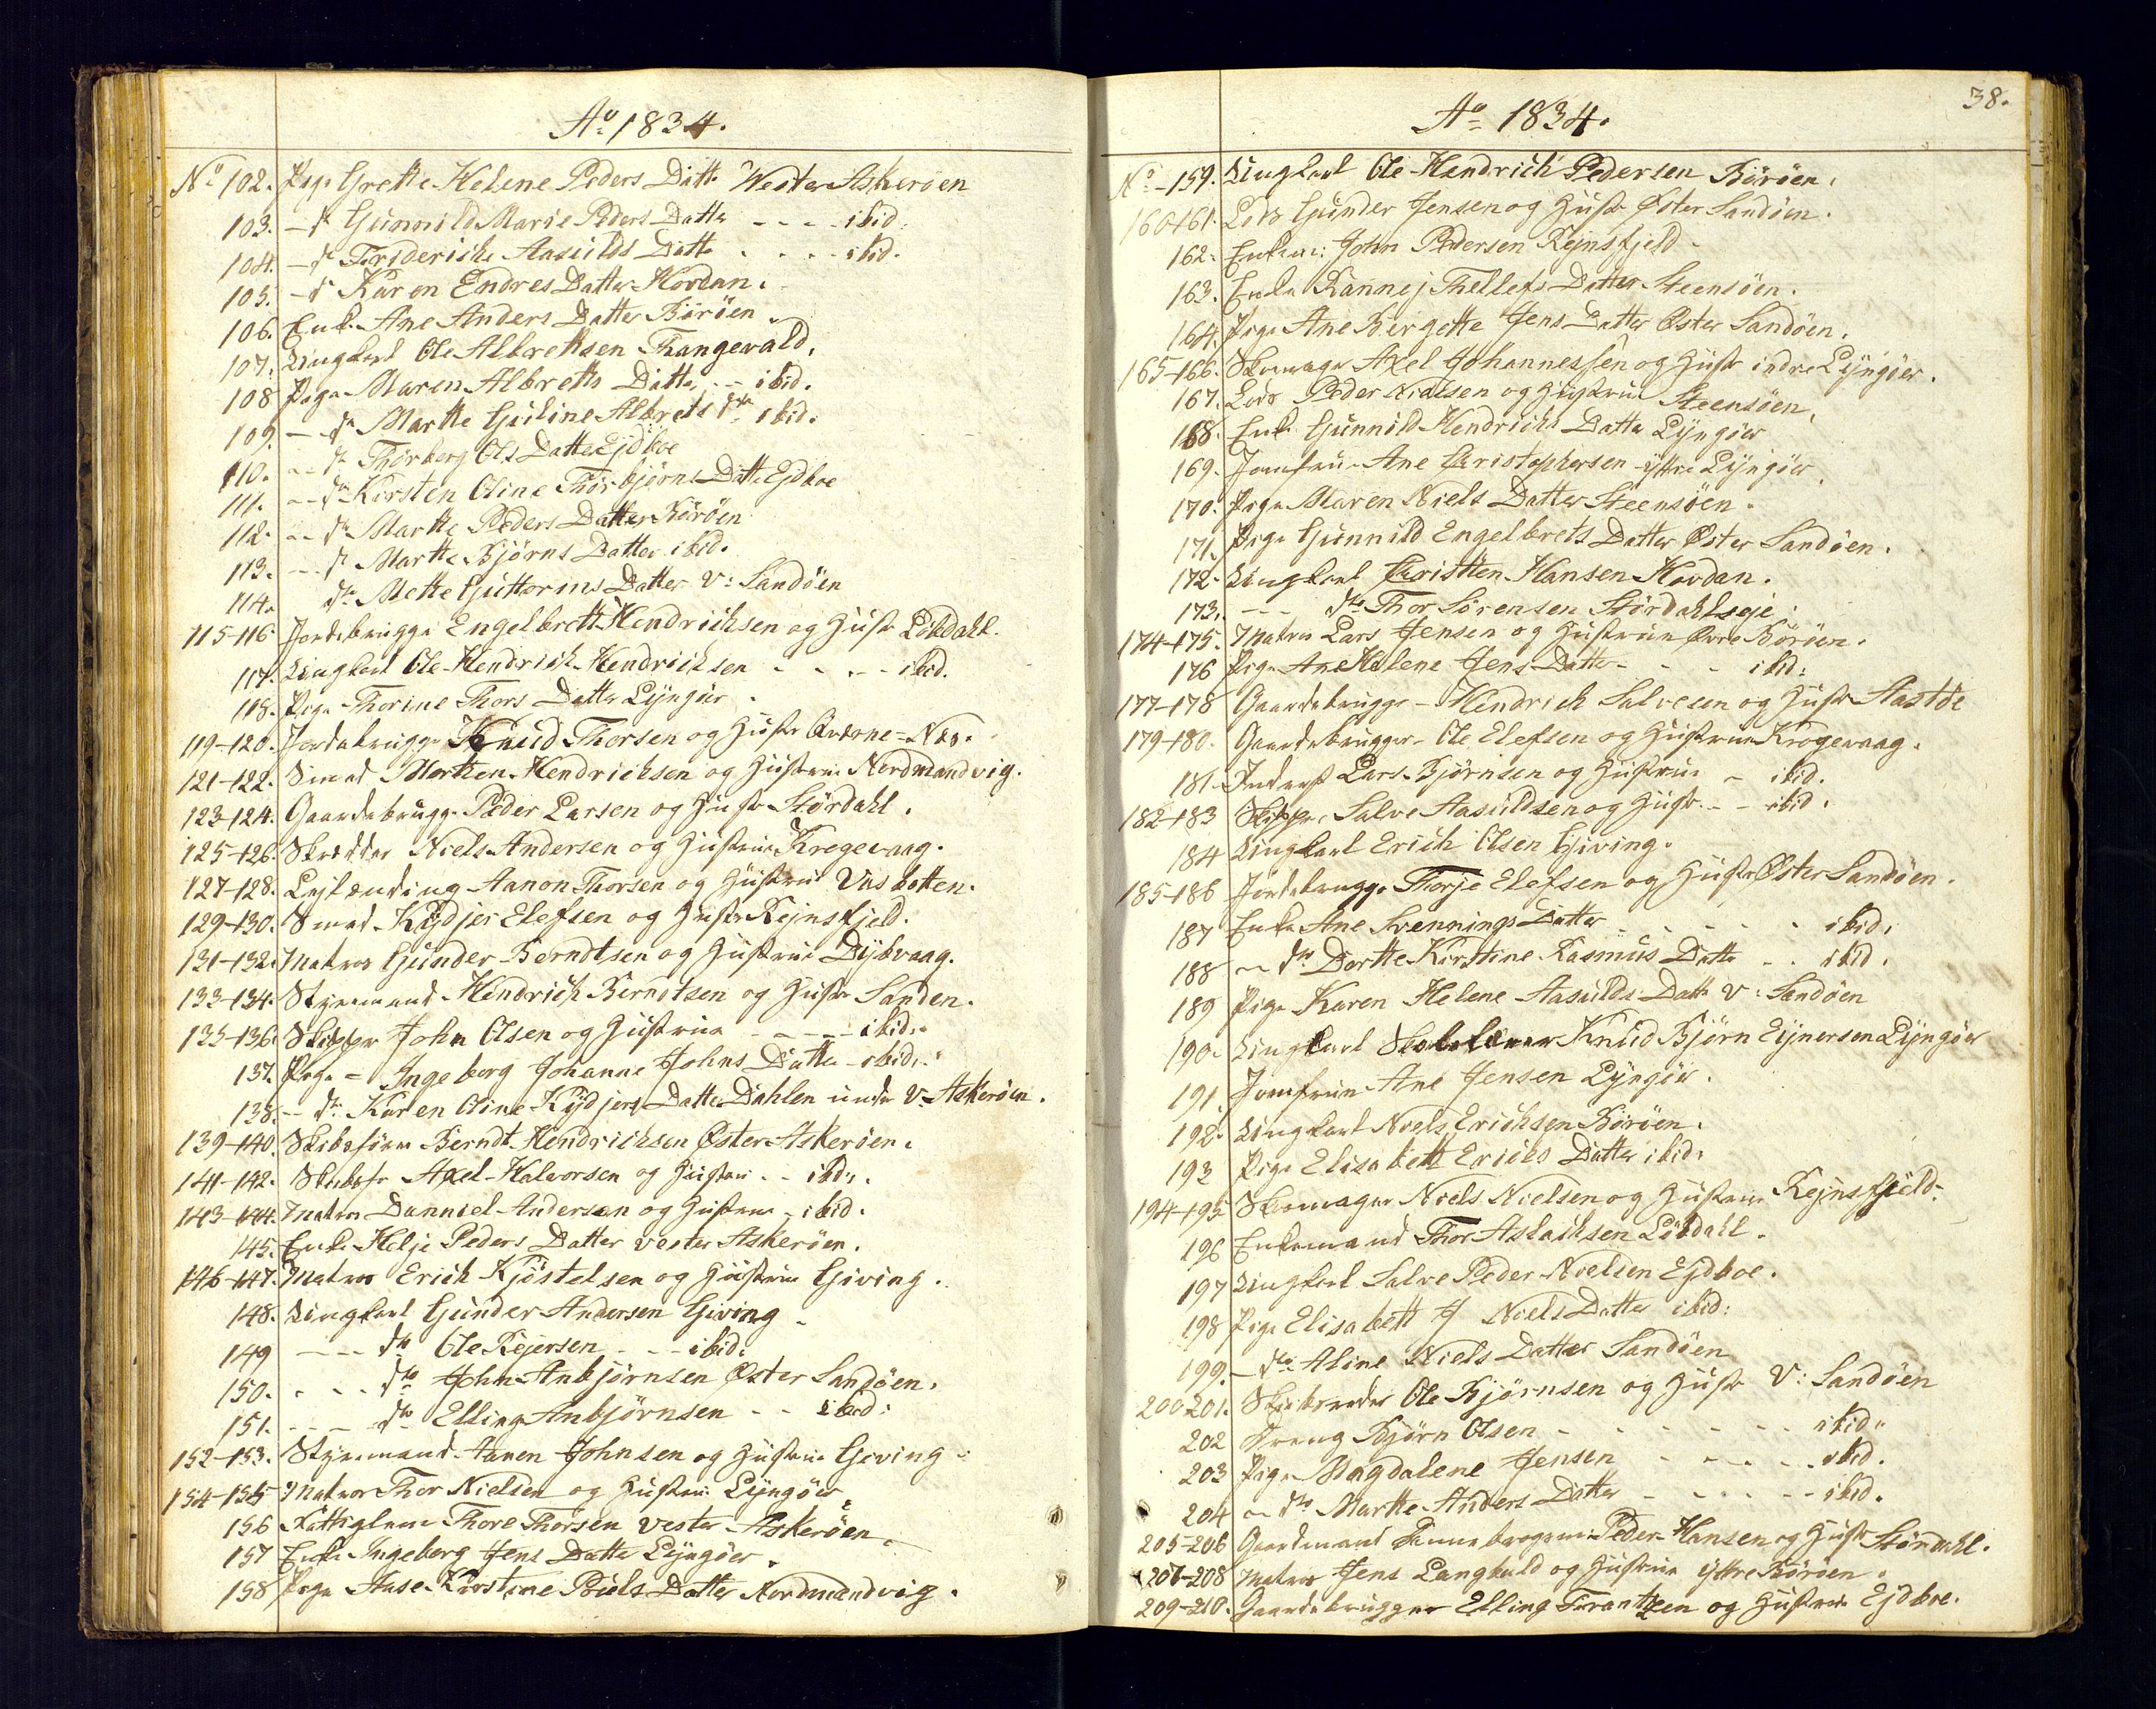 Ao 1834.
No 102. Pige Grethe Helene Peders Datt. Wester Askerøen
103. - do Gunnild Marie Peders Datter - - - ibid.
104. - do Friderich Aasulds Datt. - - - ibid.
105. - do Karen Endres Datter Hovdan.
106. Enke Ane Anders Datter Børøen
107. Ungkarl Ole Albretsen Thangevald.
108 Pige Maren Albreths Datter - - ibid.
109. - do Marthe Guline Albrets dtr ibid.
110. - do Thorborg Ols Datter Ejdboe
111. - do Kirsten Oline Thorbjørns Datt. Ejdboe
112. - do Marthe Peders Datter Børøen
113. - do Marthe Bjørns Datter ibid.
114. do Mette Guttorms Datter V: Sandøen
115-116. Jordebrugge Engelbrett Hendrichsen og Hustr Løvdahl.
117. Ungkarl Ole Hendrich Hendrichsen - - - - ibid.
118. Pige Thorine Thors Datter Lyngøer
119-120. Jordebrugge Knud Thorsen og Hustr Qværne-Næs.
121-122. Smed Morthen Hendrichsen og Hustrue Nordmandvig.
123-124. Gaardebrugg. Peder Larsen og Hustr Størdahl.
125-126. Skrædder Niels Andersen og Hustrue Kregevaag.
127-128. Lejlænding Aanon Thorsen og Hustrue Vasbotten.
129-130. Smed Kydjer Elefsen og Hustr Rejnsfjeld.
131-132. Matros Gunder Berndtsen og Hustrue Dybvaag.
133-134. Styrmand Hendrich Berndtsen og Hustr Sanden.
135-136. Skipper John Olsen og Hustrue - - - - ibid.
137. Pige - Ingeborg Johanne Johns Datter - ibid.
138. - do Karen Oline Kydjers Datter Dahlen under V. Askerøen.
139-140. Skibsfører Berndt Hendrichsen Øster Askerøen.
141-142. Skibsfr Axel Halvorsen og Hustrue - - ibid.
143-144. Matros Danniel Andersen og Hustrue - ibid.
145. Enke Helje Peders Datter vester Askerøen.
146-147. Matros Erich Kjøstelsen og Hustrue Giving.
148. Ungkarl Gunder Andersen Giving
149 - - - do Ole Rejersen - - - ibid.
150. - - - do John Anbjørnsen Øster Sandøen.
151. - - - do Elling Anbjørnsen - - ibid:
152-153. Styrmand Aanen Johnsen og Hustrue Giving
154-155 Matros Thor Nielsen og Hustrue Lyngøer
156 Fattiglem Thore Thorsen vester Askerøen
157 Enke Ingeborg Jens Datter Lyngøer.
158 Pige Aase Kirstine Pouls Datter Nordmandvig.
38.
Ao 1834.
No -159. Ungkarl Ole Hendrich Pedersen Børøen.
160-161. Lods Gunder Jensen og Hustr Øster Sandøen.
162. Enkem: John Pedersen Rejnsfjeld
163. Enke Rannej Thellefs Datter Steensøen.
164. Pige Ane Bergette Jens Datter Øster Sandøen.
165-166. Skomager Axel Johannessen og Hustr indre Lyngøer.
167. Lods Peder Nielsen og Hustrue Steensøen.
168. Enke Gunnild Hendrichs Datter Lyngøer
169. Jomfrue Ane Christophersen yttre Lyngøer
170. Pige Maren Niels Datter Steensøen.
171. Pige Gunnild Engelbrets Datter Øster Sandøen.
172. Ungkarl Christen Hansen Hovdan.
173. - - - do Thor Sørensen Stördahlseje:
174-175. Matros Lars Jensen og Hustrue Øvre Børøen.
176 Pige Ane Helene Jens Datter - - - ibid:
177-178 Gaardebrugge - Hendrich Salvesen og Hustr Aastøe
179-180. Gaardebrugger - Ole Elefsen og Hustrue Krogevaag.
181. Inderst Lars Bjørnsen og Hustrue - ibid.
182-183 Skipper Salve Aasuldsen og Hustr - - ibid.
184 Ungkarl Erich Olsen Giving.
185-186 Jordebrugge Thorje Elefsen og Hustr Øster Sandøen.
187 Enke Ane Svennings Datter - - - - - ibid.
188 - do Dorthe Kirstine Rasmus Datt. - - ibid.
189 Pige Karen Helene Aasulds Datt. V: Sandøen
190. Ungkarl Skolelærer Knud Bjørn Eynersen Lyngøer
191. Jomfrue Ane Jensen Lyngøer.
192. Ungkarl Niels Erichsen Børøen.
193 Pige Elisabett Erichs Datter ibid.
194-195 Skomager Niels Nielsen og Hustrue Rejnsfjeld.
196 Enkemand Thor Aslachsen Løvdahl.
197 Ungkarl Salve Peder Nielsen Ejdboe.
198 Pige Elisabett J Niels Datter ibid:
199. - do Aline Niels Datter Sandøen
200-201. Skibsreder Ole Bjørnsen og Hustr V: Sandøen
202 Dreng Bjørn Olsen - - - - - - - ibid.
203 Pige Magdalene Jensen - - - - - ibid.
204 - do Marthe Anders Datter - - - - - ibid.
205-206 Gaardmand Dannebrogsm: Peder Hansen og Hustr Størdahl.
207-208 Matros Jens Langkuld og Hustrue ÿttre Børøen.
209-210. Gaardebrugger Elling Frantzen og Hustrue Ejdboe.